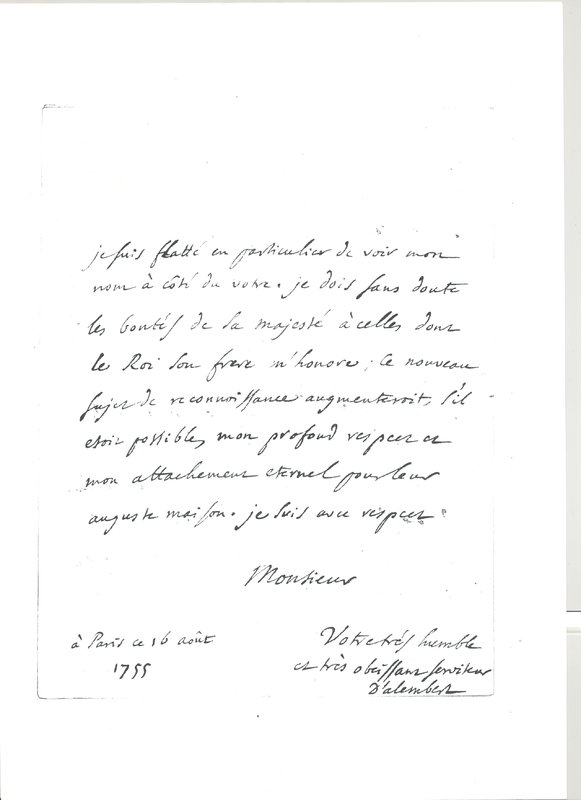 je suis flatté en particulier de voir mon
nom à côté du votre. je dois sans doute
les bontés de sa majesté à celles dont
le Roi son frere m'honore; ce nouveau
sujet de reconnoissance augmenteroit, s'il
etoit possible, mon profond respect et
mon attachement eternel pour leur
auguste maison. je suis avec respect
Monsieur
à Paris ce 16 août
1755
Votre très humble
et très obeissant serviteur
D'alembert